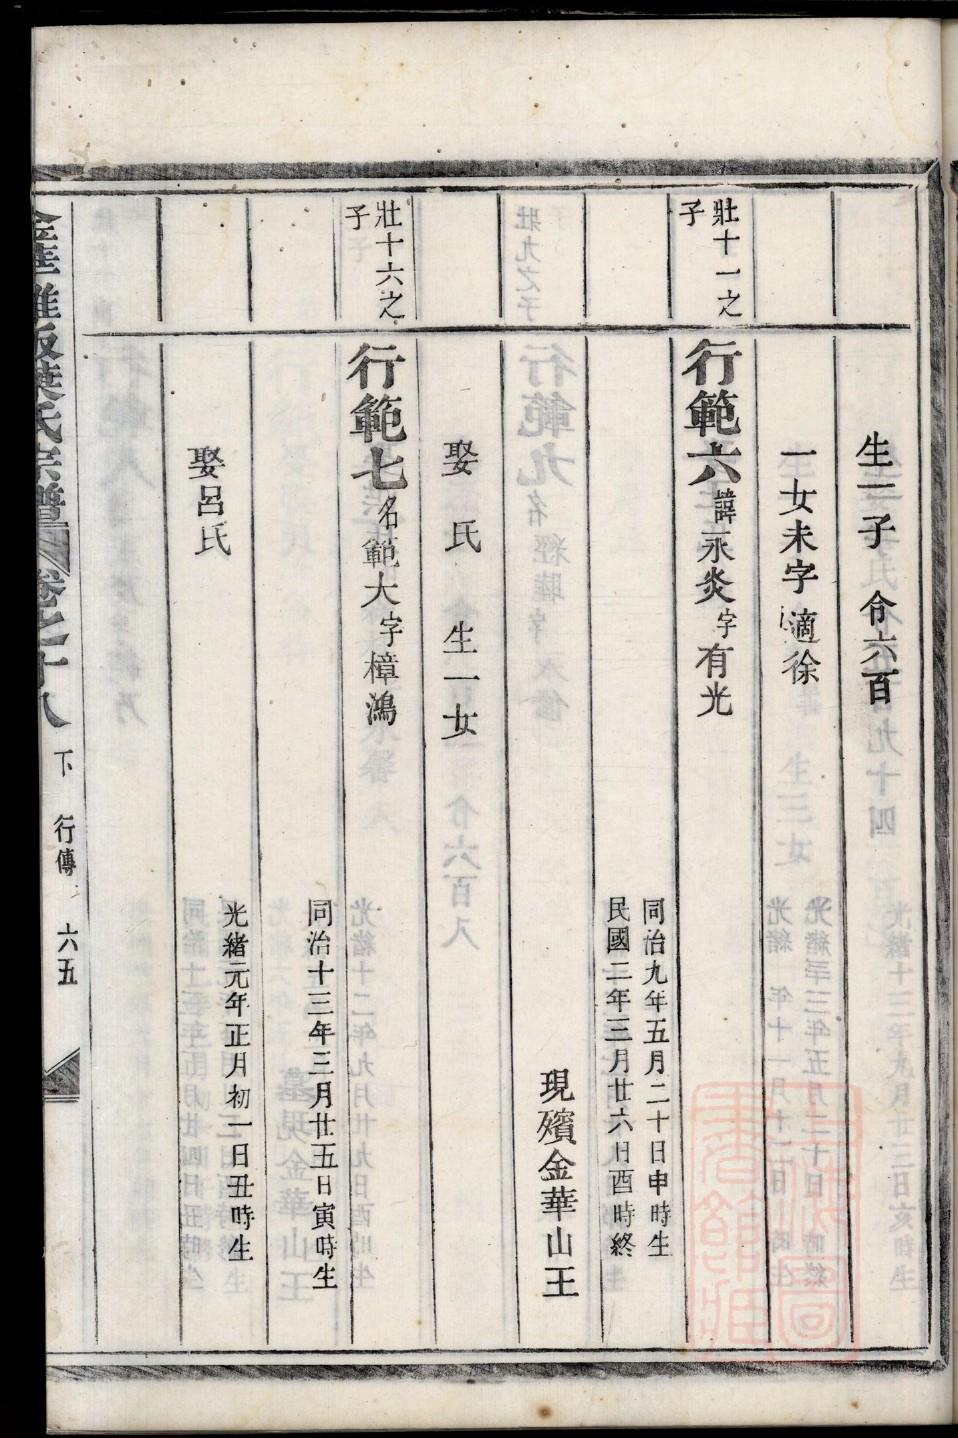 生一子 令六百
一女未字 適徐
壯十一之
子
行範六 諱永炎字有光
同治九年五月二十日申時生
民國二年三月廿六日酉時終
現殯金華山王
娶 氏 生一女
壯十六之
子
行範七 名範大字樟鴻
同治十三年三月廿五日寅時生
娶呂氏
光緒元年正月初一日丑時生
葉氏宗譜 卷之十八 下 行傳 六五